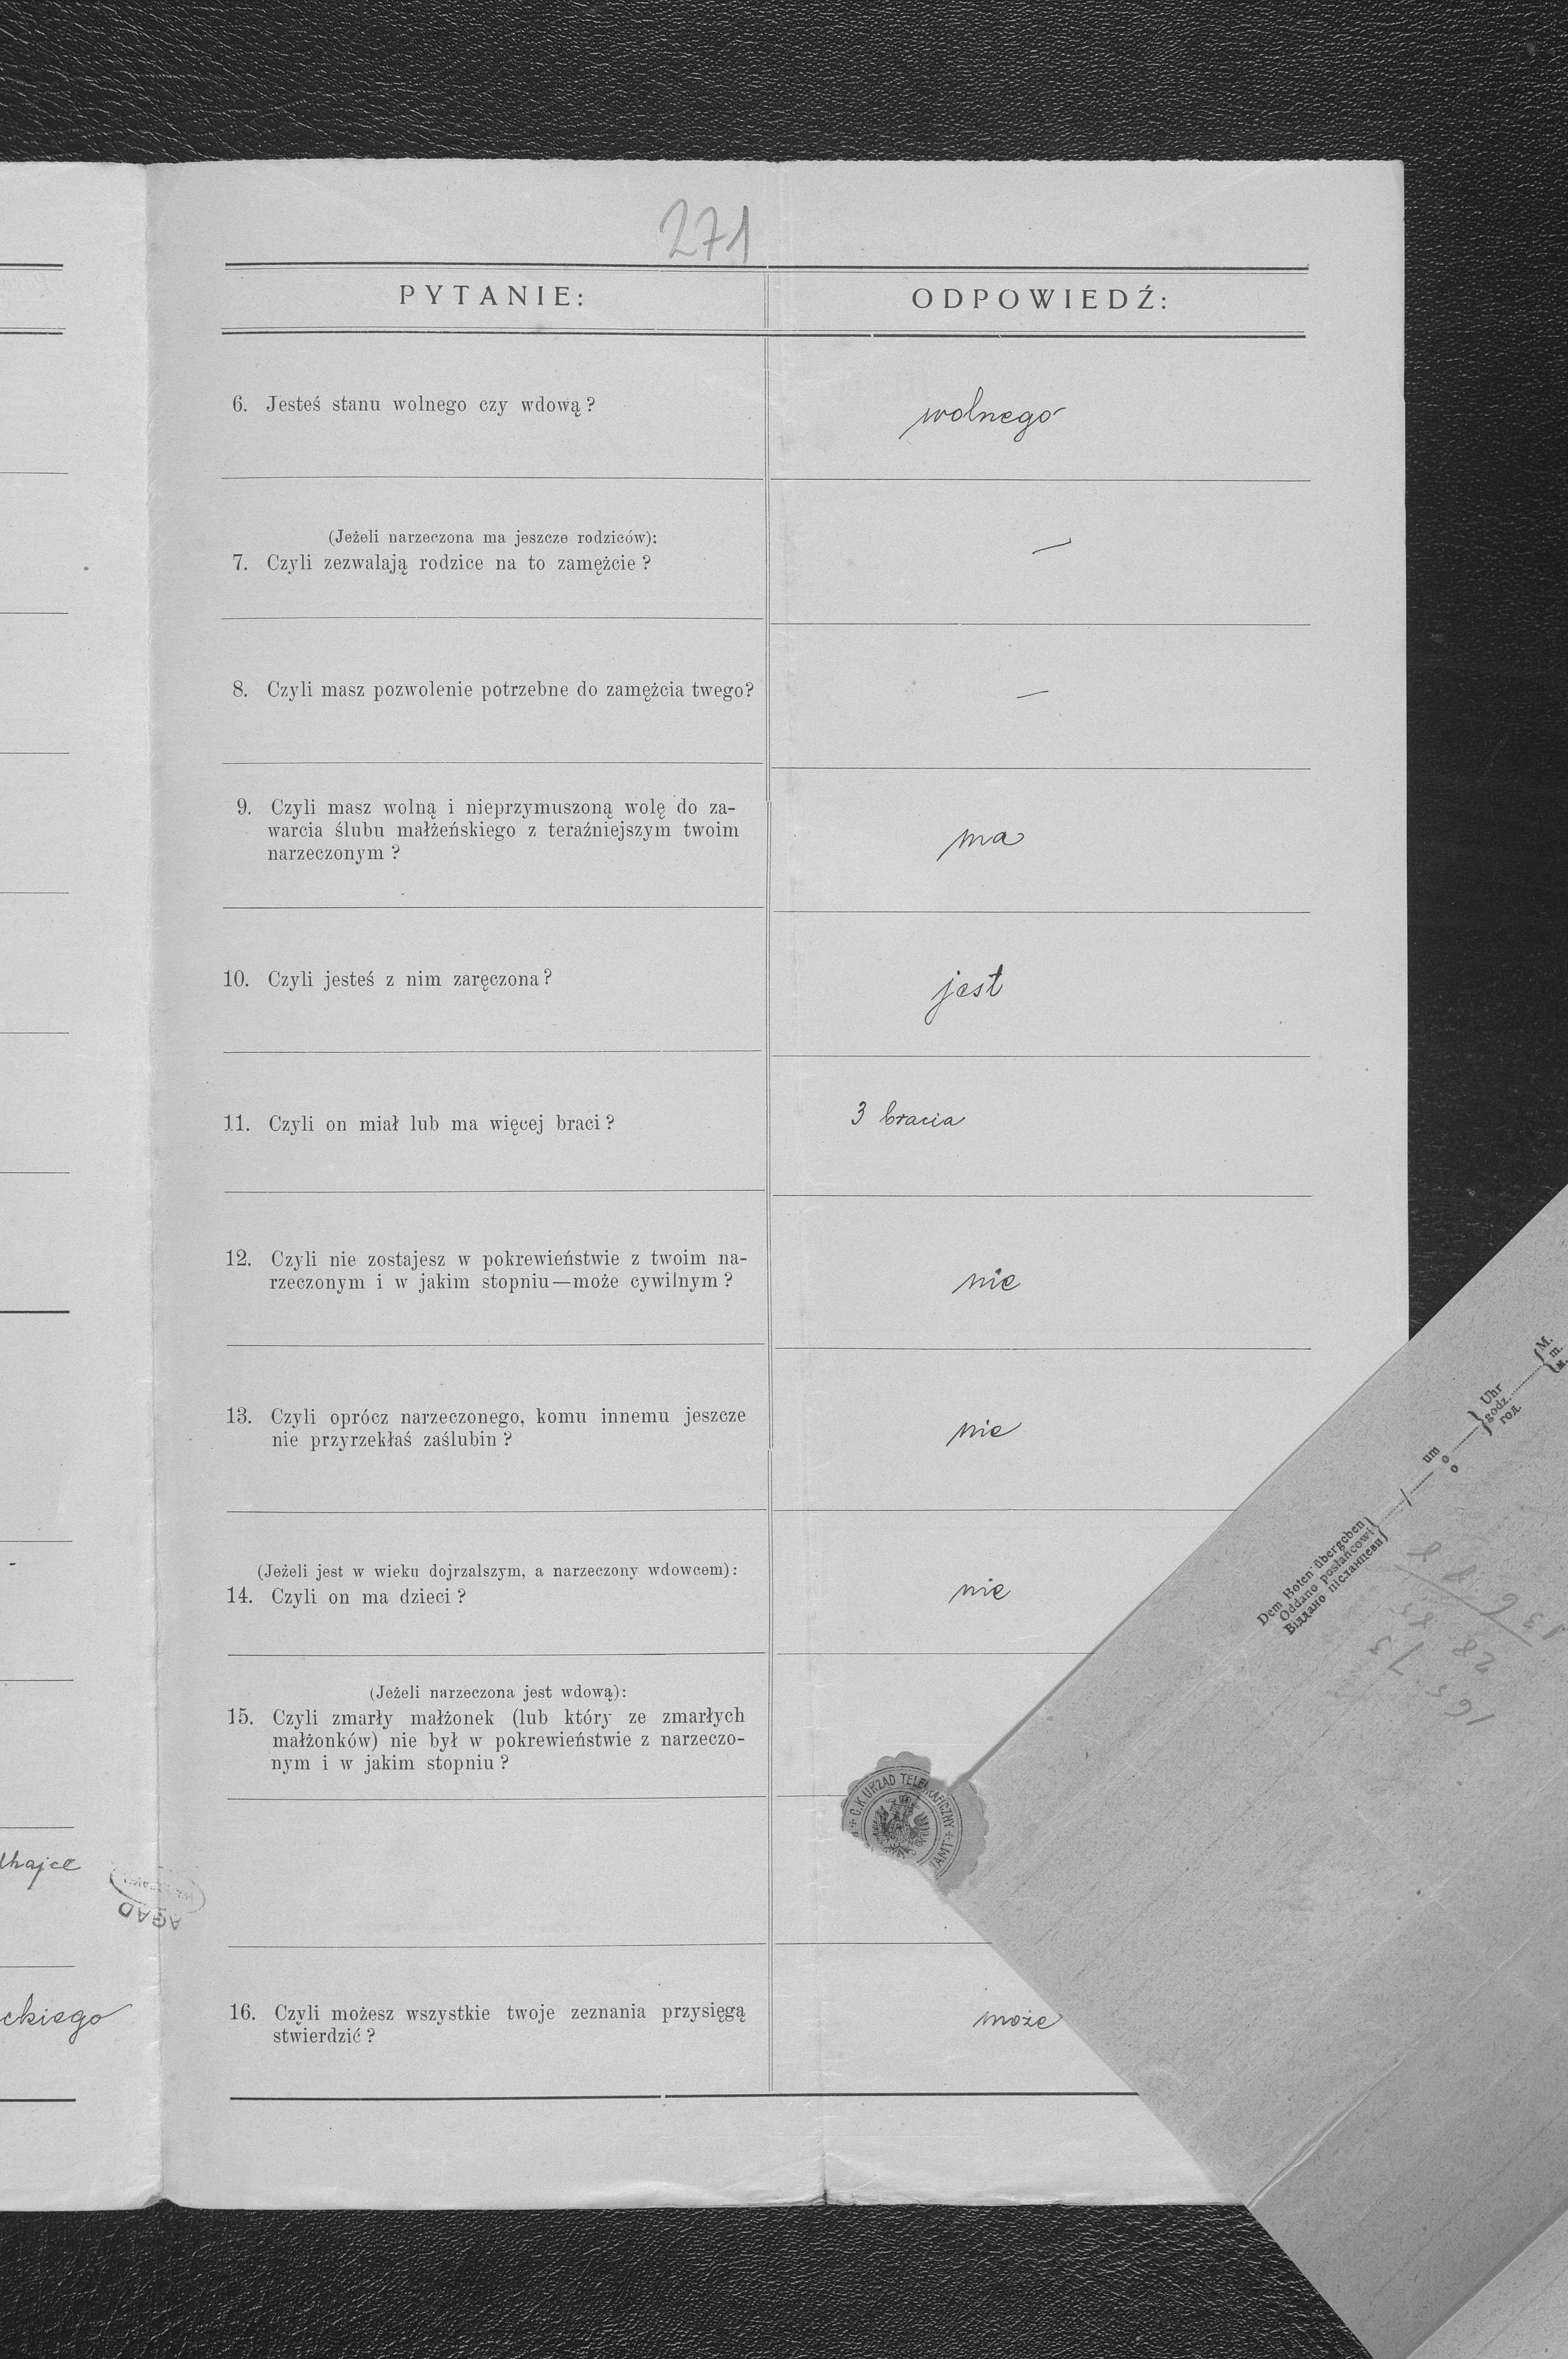 271
PYTANIE:
ODPOWIEDŹ:
6. Jesteś stanu wolnego czy wdową?
wolnego
(Jeżeli narzeczona ma jeszcze rodziców):
7. Czyli zezwalają rodzice na to zamężcie?
—
8. Czyli masz pozwolenie potrzebne do zamężcia twego?
—
9. Czyli masz wolną i nieprzymuszoną wolę do za-
warcia ślubu małżeńskiego z teraźniejszym twoim
narzeczonym?
ma
10. Czyli jesteś z nim zaręczona?
jest
11. Czyli on miał lub ma więcej braci?
3 bracia
12. Czyli nie zostajesz w pokrewieństwie z twoim na-
rzeczonym i w jakim stopniu—może cywilnym?
nie
13. Czyli oprócz narzeczonego, komu innemu jeszcze
nie przyrzekłaś zaślubin?
nie
(Jeżeli jest w wieku dojrzalszym, a narzeczony wdowcem):
14. Czyli on ma dzieci?
nie
(Jeżeli narzeczona jest wdową):
15. Czyli zmarły małżonek (lub który ze zmarłych
małżonków) nie był w pokrewieństwie z narzeczo-
nym i w jakim stopniu?
16. Czyli możesz wszystkie twoje zeznania przysięgą
stwierdzić?
może
ckiego
AGAD
C.K. URZĄD TELEGRAFICZNY
AMT
Dem Boten übergeben
Oddano posłańcowi
Віддано післанцеви
um
o
o
Uhr
godz.
год.
M.
m.
м.
165
28
136
73